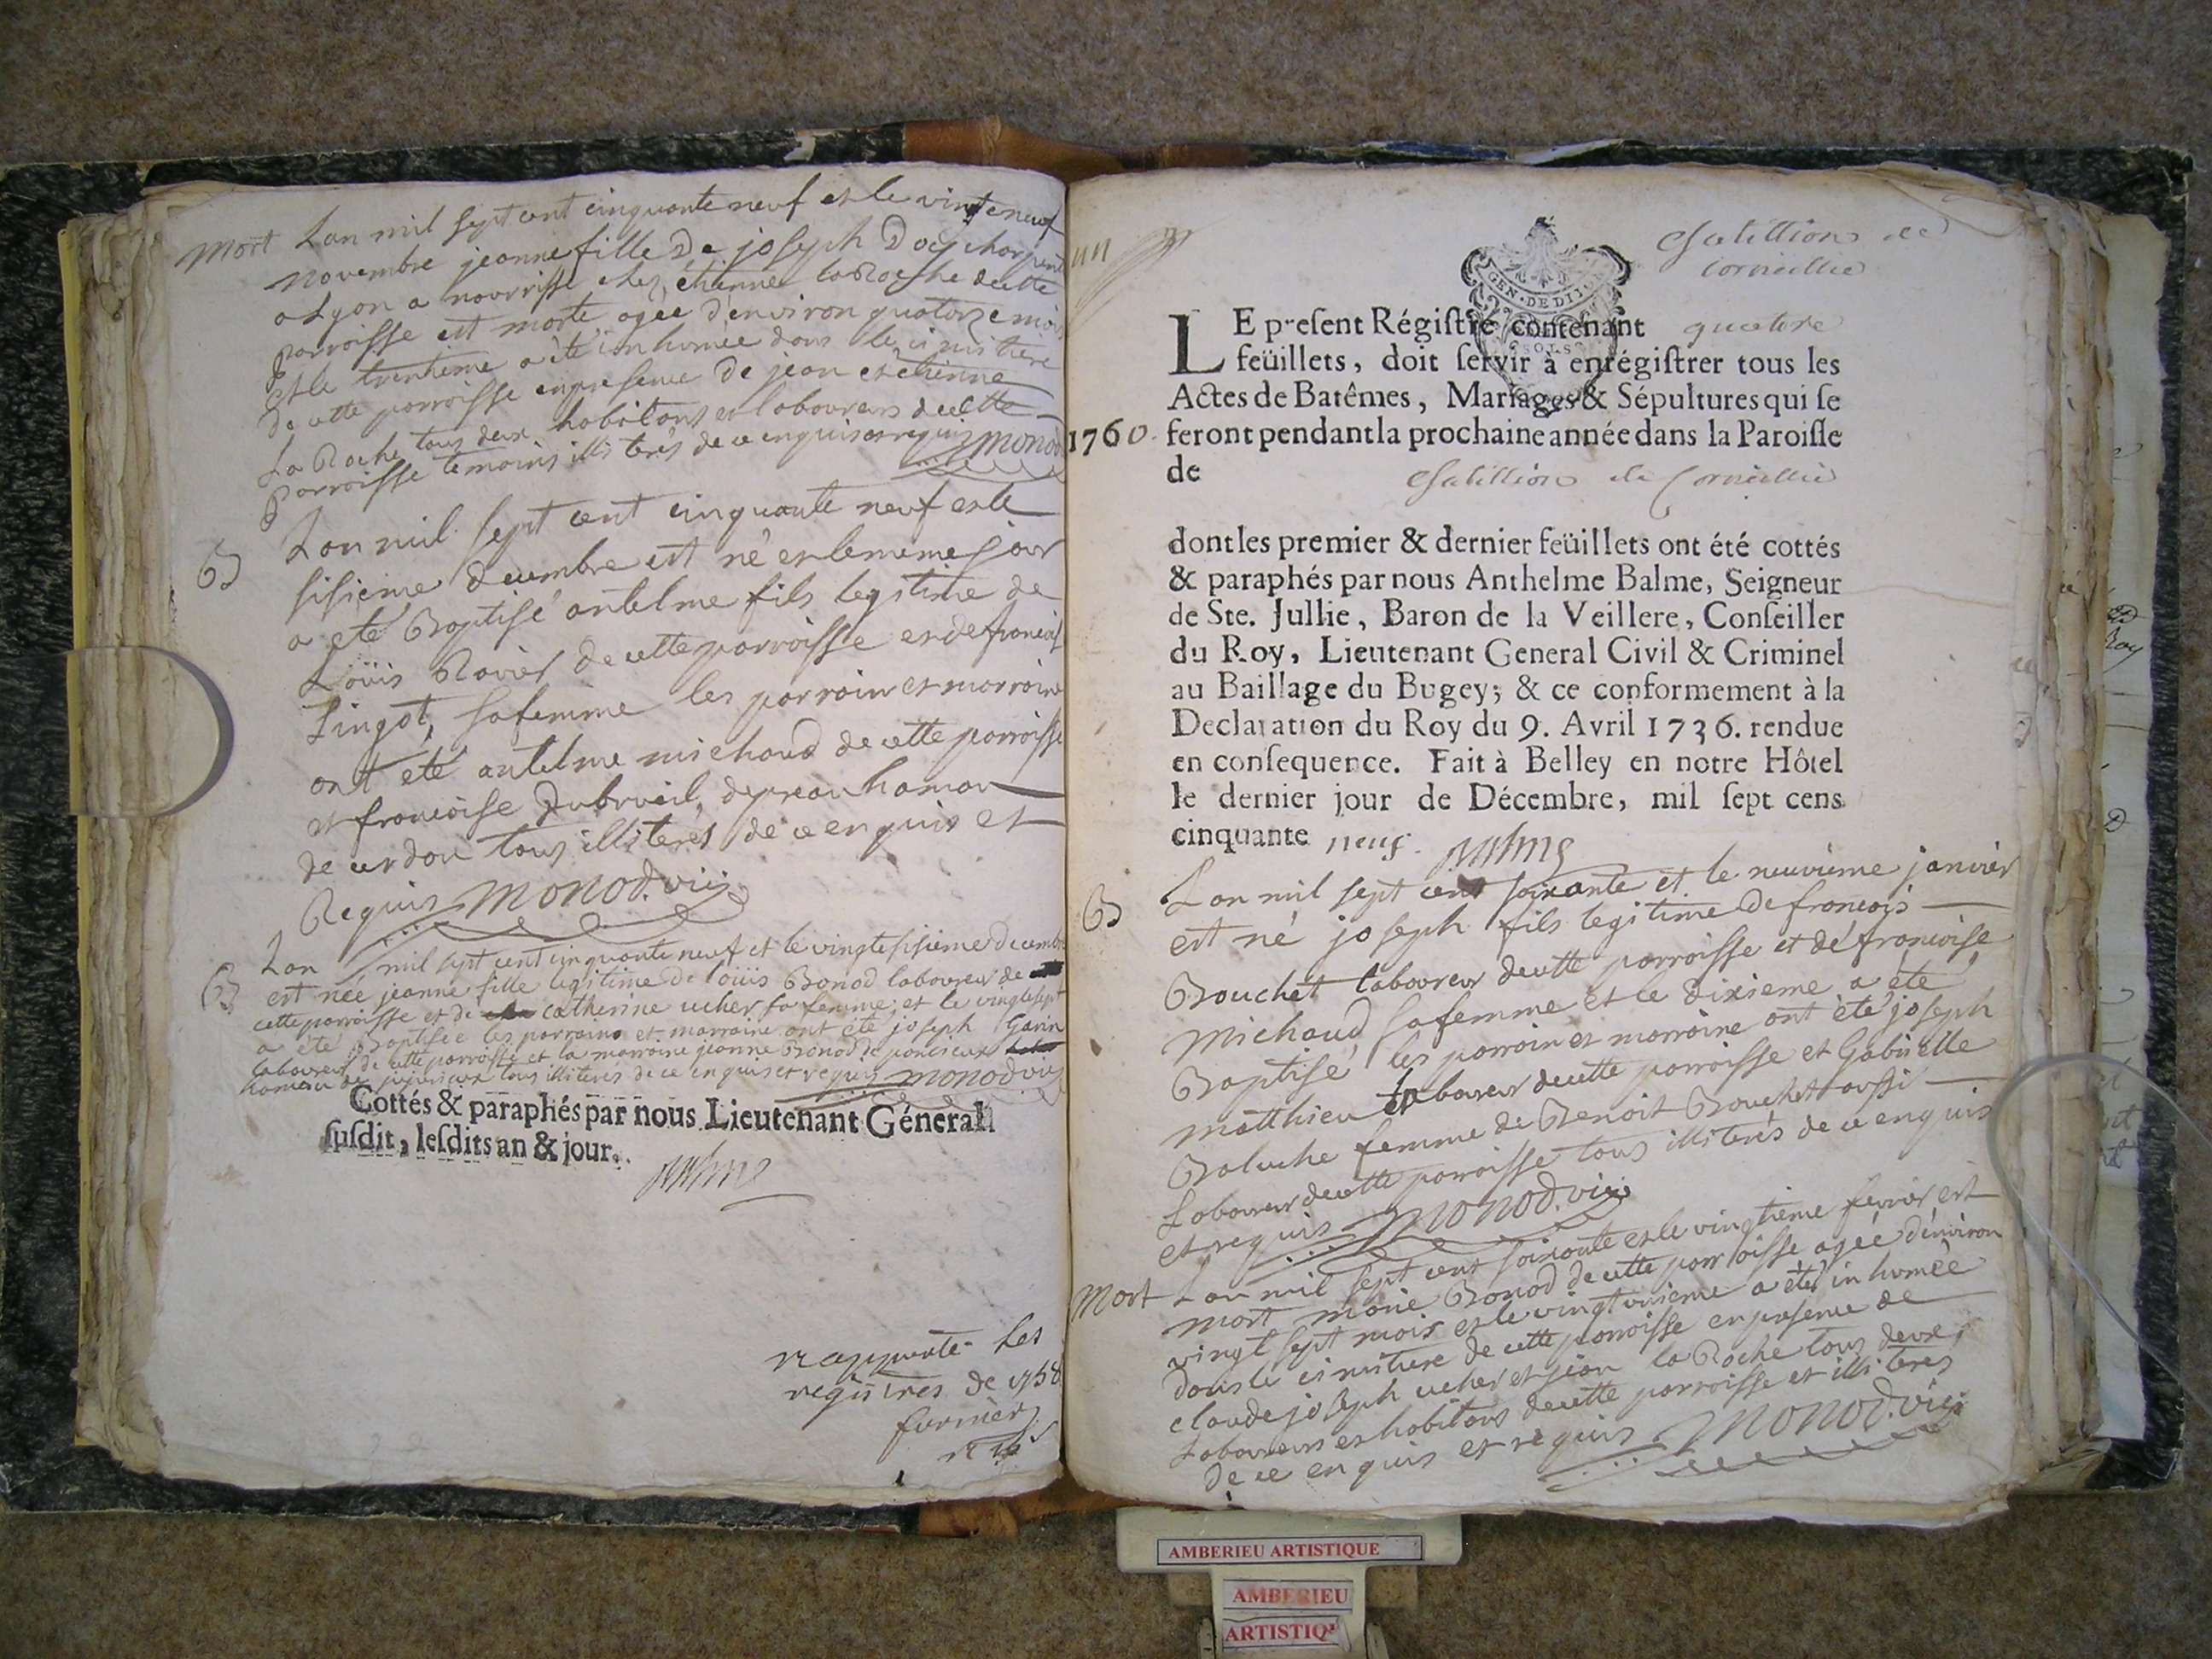 Mort
Lan mil sept cent cinquante neuf et le vingt e neuf
novembre jeanne fille De joseph
a Lyon a nourrisse chez etienne la Roche de cette
parroisse est morte agée d'environ quatorze mois
et le trentieme a été inhumée dans le cimitiere
de cette parroisse en presence de jean et etienne
La Roche tous deux habitans et laboureurs de cette
parroisse temoins illiterés de ce enquis et requis monod
B
Lan mil sept cent cinquante neuf et le
sisieme decembre est né et le meme jour
a eté Baptisé antelme fils legitime de
Loüis Ravier de cette parroisse et de francoise
Lingot, sa femme les parrain et marraine
ont eté antelme michaud de cette parroisse
et francoise Dubrueil,
de cerdon tous illiterés de ce enquis et
Requis monod. vic
B
Lan mil sept cent cinquante neuf et le vingt e sisieme decembre
est née jeanne fille legitime de loüis Bonod laboureur de
cette parroisse et de catherine ucher sa femme, et le vingt e sept
a été Baptisée les parrains et marraine ont eté joseph Garin
laboureur de cette parroisse et la marraine jeanne Bonod de poncieux
hameau de jujurieux tous illiterés de ce enquis et requis monod vic
Cottés & paraphés par nous Lieutenant Géneral
susdit, lesdits an & jour.
rapporté les
registres de 1758
1760
Chatillion de
Corneillie
GEN·DE DIJ
SOLS
LE present Régistre contenant quatore
feüillets, doit servir à enrégistrer tous les
Actes de Batêmes, Mariages & Sépultures qui se
feront pendant la prochaine année dans la Paroisse
de Chatillion de Corneillie
dont les premier & dernier feüillets ont été cottés
& paraphés par nous Anthelme Balme, Seigneur
de Ste. Jullie, Baron de la Veillere, Conseiller
du Roy, Lieutenant General Civil & Criminel
au Baillage du Bugey; & ce conformement à la
Declaration du Roy du 9. Avril 1736. rendue
en consequence. Fait à Belley en notre Hôtel
le dernier jour de Décembre, mil sept cens
cinquante neuf. Balme
B
Lan mil sept cent soixante et le neuvieme janvier
est né joseph fils legitime de francois
Bouchet laboureur de cette parroisse et de francoise
Michaud sa femme et le dixieme a été
Baptisé les parrain et marraine ont été joseph
matthieu laboureur de cette parroisse et Gabrielle
Baluche femme de Benoit Bouchet aussi
Laboureur de cette parroisse tous illiterés de ce enquis
et requis monod. vic
Mort
Lan mil sept cent soixante et le vingtieme fevrier est
mort marie Bonod de cette parroisse agée d'environ
vingt sept mois et le vingt unieme a été inhumée
dans le cimitiere de cette parroisse en presence de
claude joseph ucher et jean la Roche tous deux
Laboureurs et habitans de cette parroisse et illiteres
de ce enquis et requis monod. vic
AMBERIEU ARTISTIQUE
AMBERIEU
ARTISTIQ